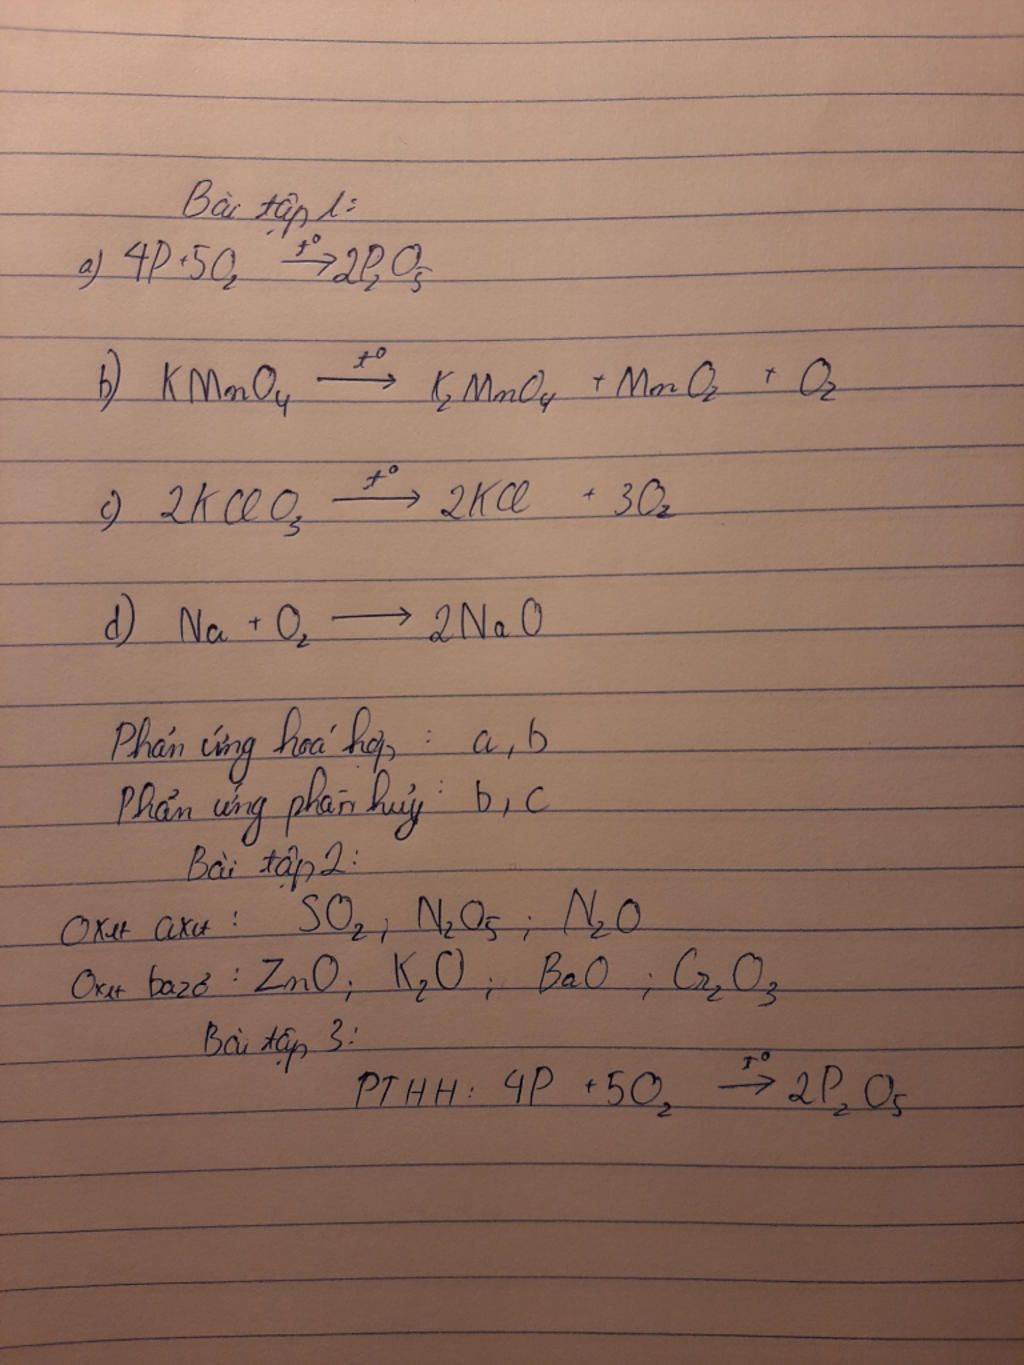 Bài tập 1:
a) 4P + 5O₂ t° → 2P₂O₅
b) KMnO₄ t° → K₂MnO₄ + MnO₂ + O₂
c) 2KClO₃ t° → 2KCl + 3O₂
d) Na + O₂ → 2NaO
Phản ứng hoá hợp : a, b
Phản ứng phân hủy : b, c
Bài tập 2:
Oxit axit : SO₂ ; N₂O₅ ; N₂O
Oxit bazơ : ZnO ; K₂O ; BaO ; Cr₂O₃
Bài tập 3:
PTHH : 4P + 5O₂ t° → 2P₂O₅